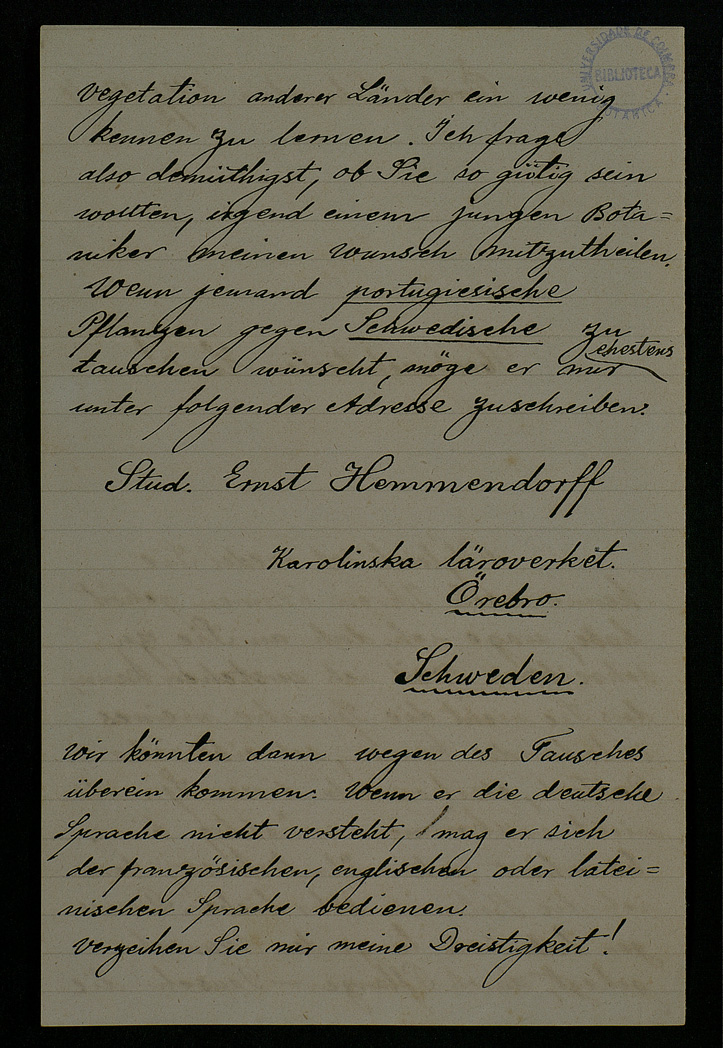 UNIVERSIDADE DE COIMBRA
BIBLIOTECA
BOTANICA
vegetation anderer Länder ein wenig
kennen zu lernen. Ich frage
also demüthigst, ob Sie so gütig sein
wollten, irgend einem jungen Bota=
niker meinen wunsch mitzutheilen.
Wenn jemand portugiesische
Pflanzen gegen Schwedische zu
tauschen wünscht, möge er mir ehestens
unter folgender Adresse zuschreiben:
Stud. Ernst Hemmendorff
Karolinska läroverket.
Örebro.
Schweden.
Wir könnten dann wegen des Tausches
überein kommen. Wenn er die deutsche
Sprache nicht versteht, mag er sich
der französischen, englischen oder latei=
nischen Sprache bedienen.
Verzeihen Sie mir meine Dreistigkeit!